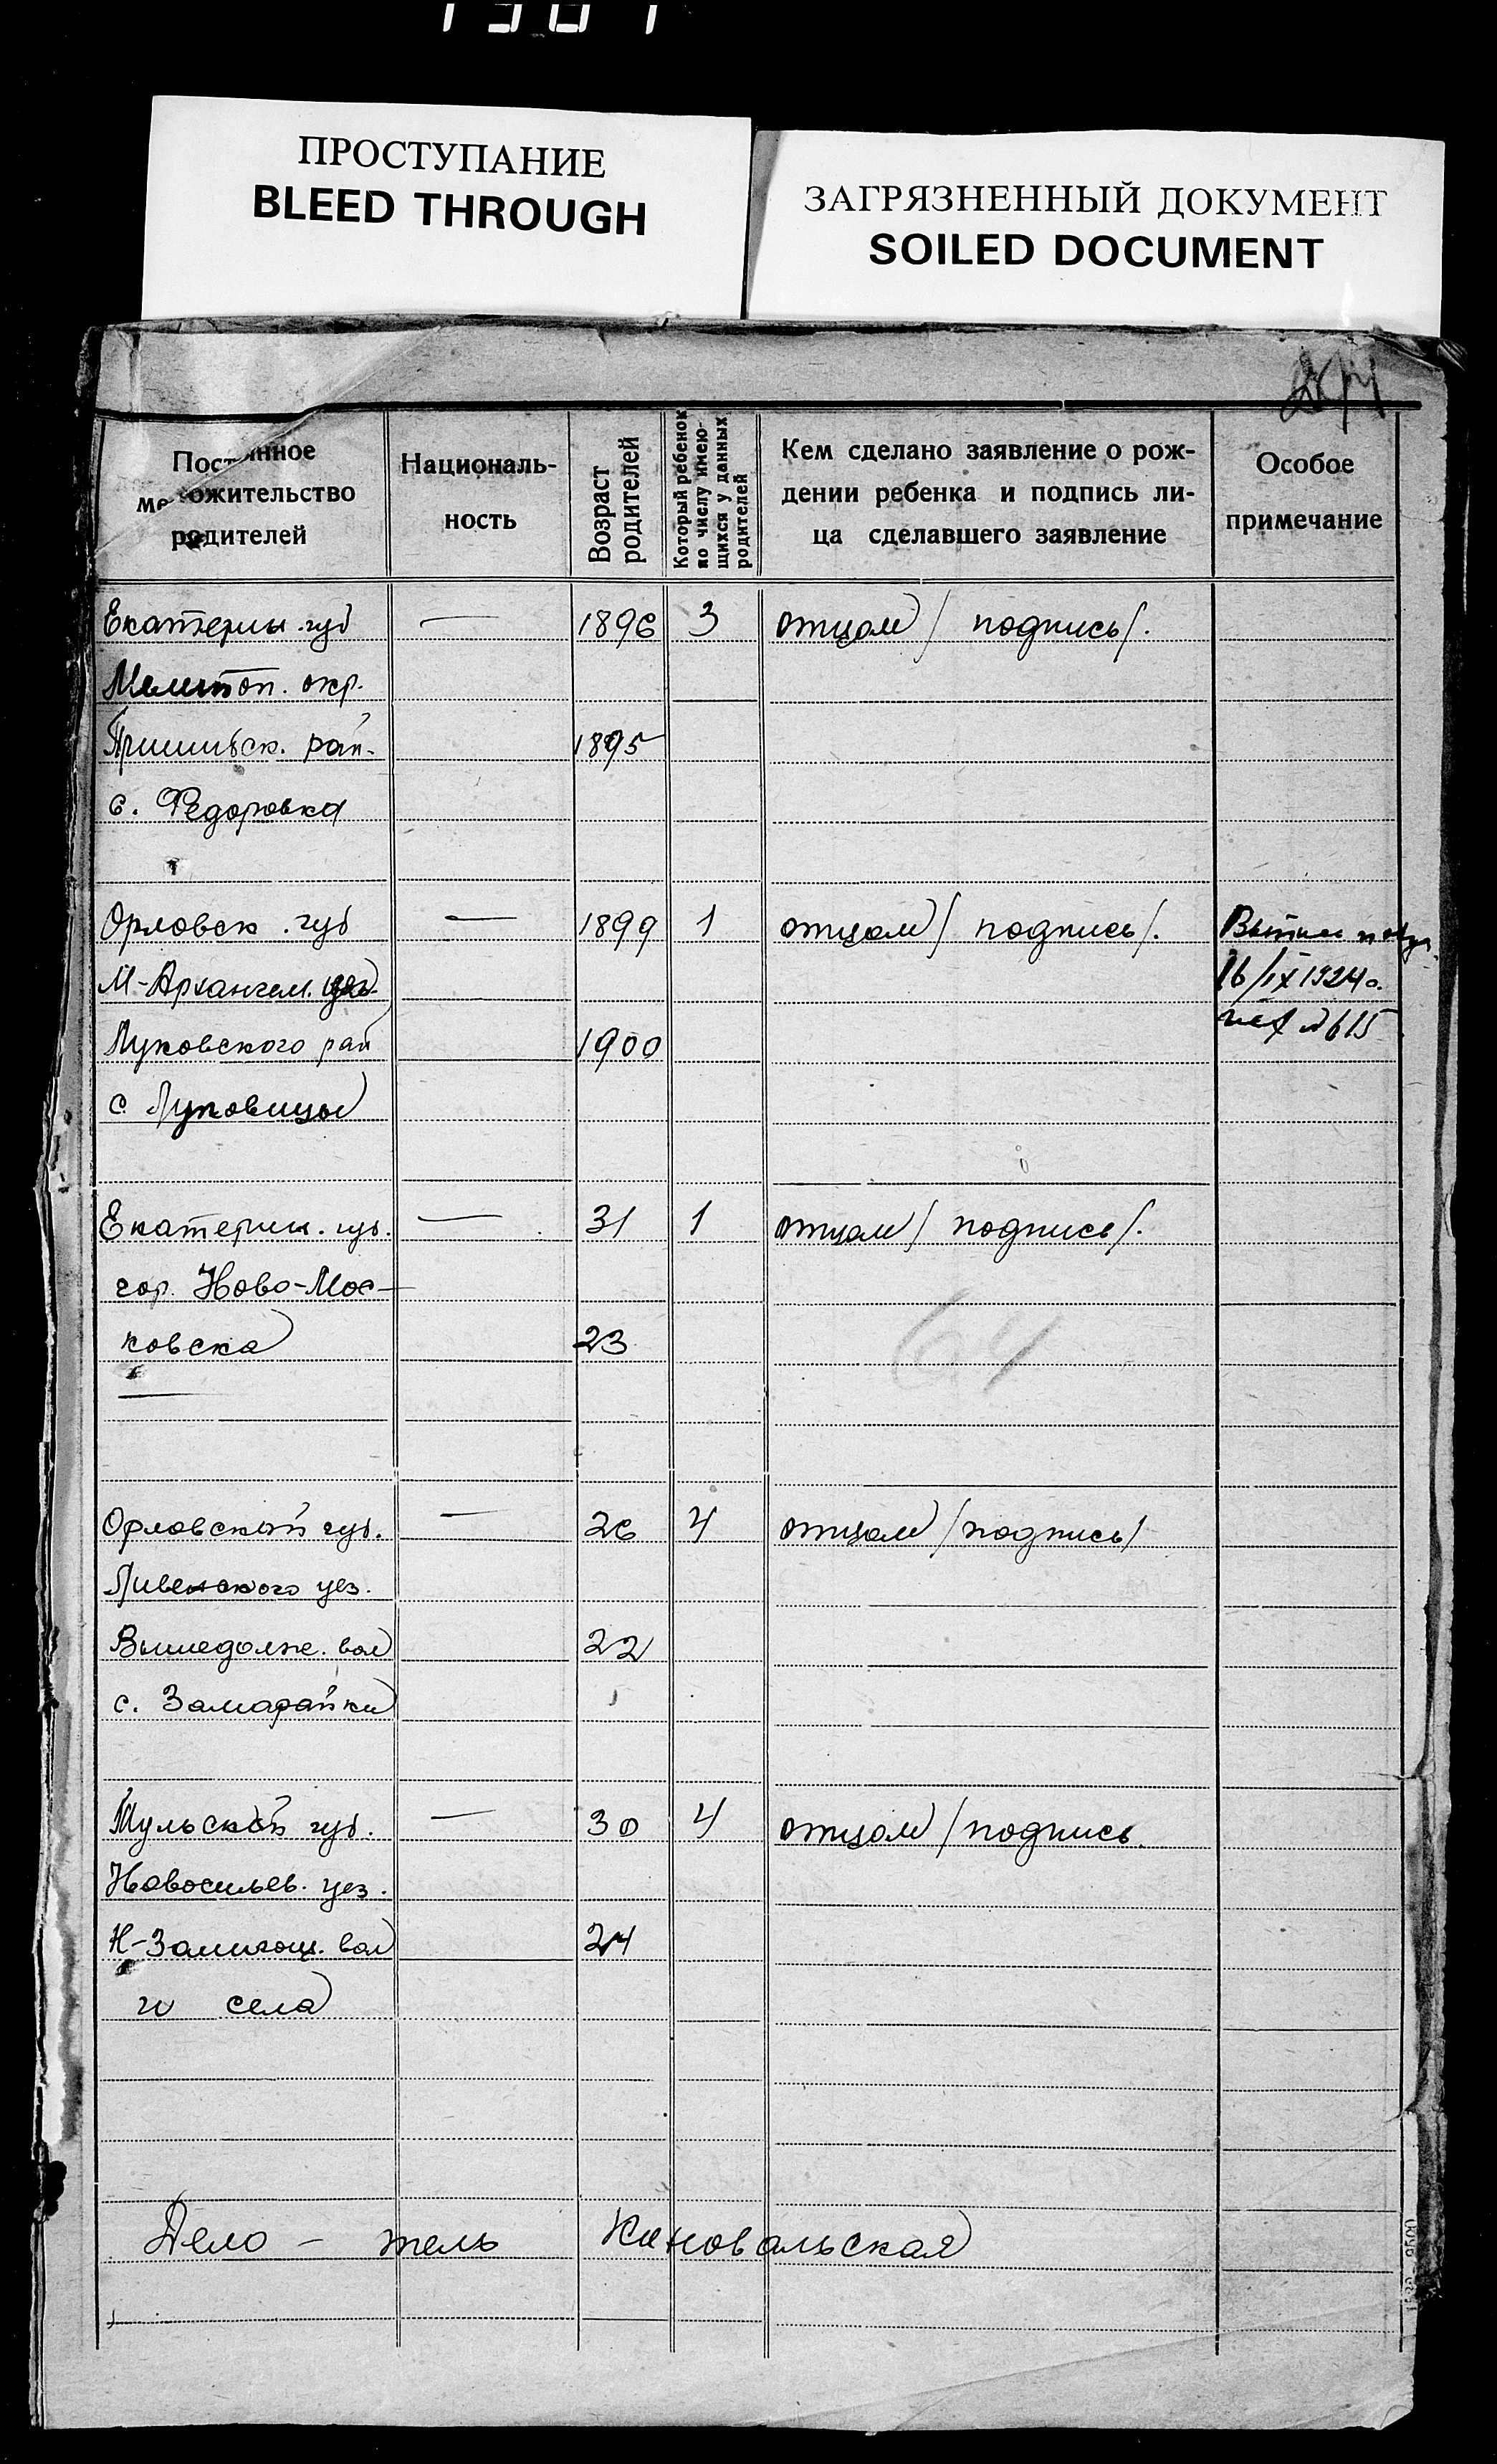 ПРОСТУПАНИЕ
BLEED THROUGH
ЗАГРЯЗНЕННЫЙ ДОКУМЕНТ
SOILED DOCUMENT
Постоянное
местожительство
родителей
Националь-
ность
Возраст
родителей
Который ребенок
по числу имею-
щихся у данных
родителей
Кем сделано заявление о рож-
дении ребенка и подпись ли-
ца сделавшего заявление
Особое
примечание
Екатерин. губ — 1896 3 отцом / подпись /.
Мелитоп. окр.
Пришибск. рай. 1895
с. Федоровка
Орловск. губ — 1899 1 отцом / подпись /.
М-Архангел. уез.
16/IX 1924 г.
Луковского рай 1900
№ 615
с. Луковицы
Екатерин. губ. — 31 1 отцом / подпись /.
гор. Ново-Мос-
ковска 23
64
Орловской губ. — 26 4 отцом / подпись /
Ливенского уез.
Вышедолж. вол 22
с. Замарайки
Тульской губ. — 30 4 отцом / подпись.
Новосильев. уез.
вол 24
села
Дело - тель Коновальская